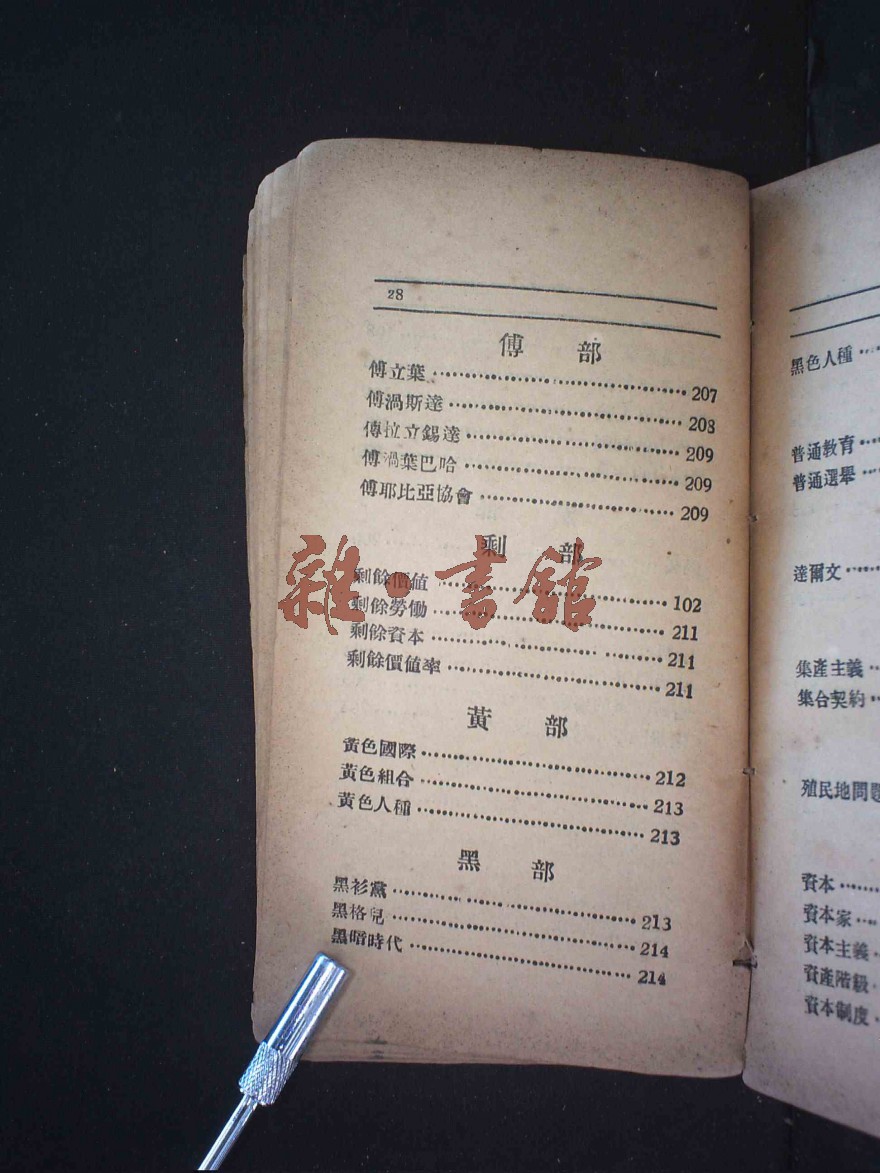 28
傅部
傅立葉 207
傅渦斯達 208
傅拉立錫達 209
傅渦葉巴哈 209
傅耶比亞協會 209
剩部
剩餘價值 102
剩餘勞働 211
剩餘資本 211
剩餘價值率 211
黃部
黃色國際 212
黃色組合 213
黃色人種 213
黑部
黑衫黨 213
黑格兒 214
黑暗時代 214
雜·書館
黑色人種
普通教育
普通選舉
達爾文
集產主義
集合契約
殖民地問題
資本
資本家
資本主義
資產階級
資本制度